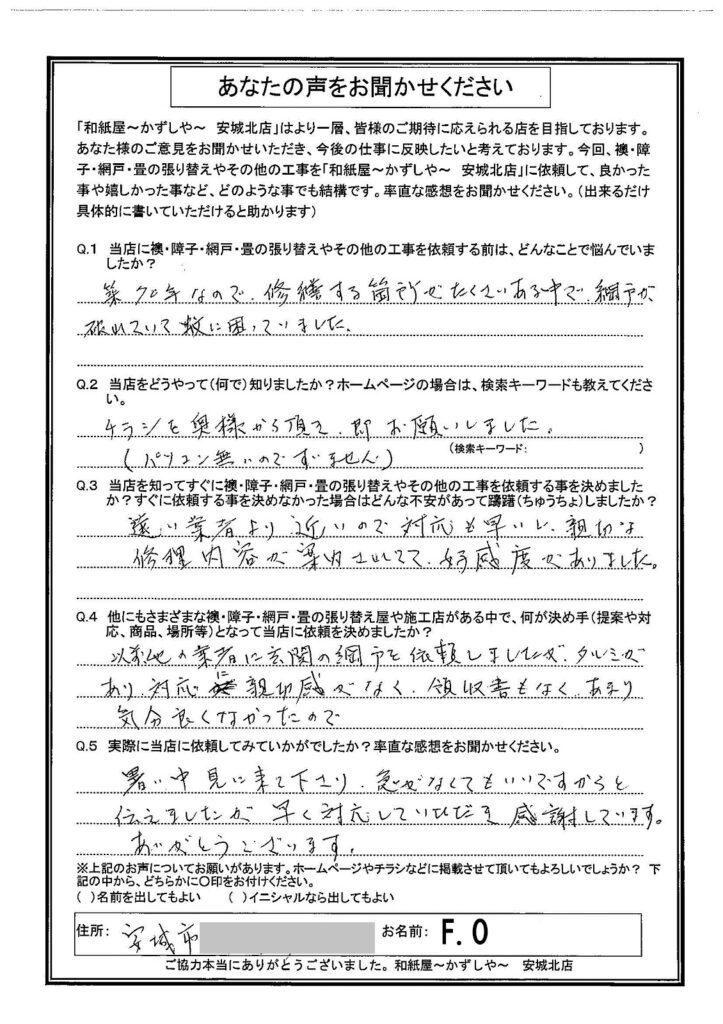 あなたの声をお聞かせください
「和紙屋～かずしや～　安城北店」はより一層、皆様のご期待に応えられる店を目指しております。
あなた様のご意見をお聞かせいただき、今後の仕事に反映したいと考えております。今回、襖・障
子・網戸・畳の張り替えやその他の工事を「和紙屋～かずしや～　安城北店」に依頼して、良かった
事や嬉しかった事など、どのような事でも結構です。率直な感想をお聞かせください。（出来るだけ
具体的に書いていただけると助かります）
Q.1　当店に襖・障子・網戸・畳の張り替えやその他の工事を依頼する前は、どんなことで悩んでいま
したか？
築70年なので、修繕する箇所がたくさんある中で、網戸が
破れていて蚊に困っていました。
Q.2　当店をどうやって（何で）知りましたか？ホームページの場合は、検索キーワードも教えてくださ
い。
チラシを奥様から頂き、即お願いしました。
（パソコン無いのですいません）
（検索キーワード：　　　　　　　）
Q.3　当店を知ってすぐに襖・障子・網戸・畳の張り替えやその他の工事を依頼する事を決めました
か？すぐに依頼する事を決めなかった場合はどんな不安があって躊躇（ちゅうちょ）しましたか？
遠い業者より近いので対応も早いし、親切な
修理内容が案内されてて、好感度がありました。
Q.4　他にもさまざまな襖・障子・網戸・畳の張り替え屋や施工店がある中で、何が決め手（提案や対
応、商品、場所等）となって当店に依頼を決めましたか？
以前他の業者に玄関の網戸を依頼しましたが、タルミが
あり、対応に親切感がなく、領収書もなく、あまり
気分良くなかったので
Q.5　実際に当店に依頼してみていかがでしたか？率直な感想をお聞かせください。
暑い中見に来て下さり、急がなくてもいいですからと
伝えましたが早く対応していただき感謝しています。
ありがとうございます。
※上記のお声についてお願いがあります。ホームページやチラシなどに掲載させて頂いてもよろしいでしょうか？　下
記の中から、どちらかに〇印をお付けください。
（　）名前を出してもよい　　（　）イニシャルなら出してもよい
住所：　安城市　　お名前：　F.O
ご協力本当にありがとうございました。和紙屋～かずしや～　安城北店